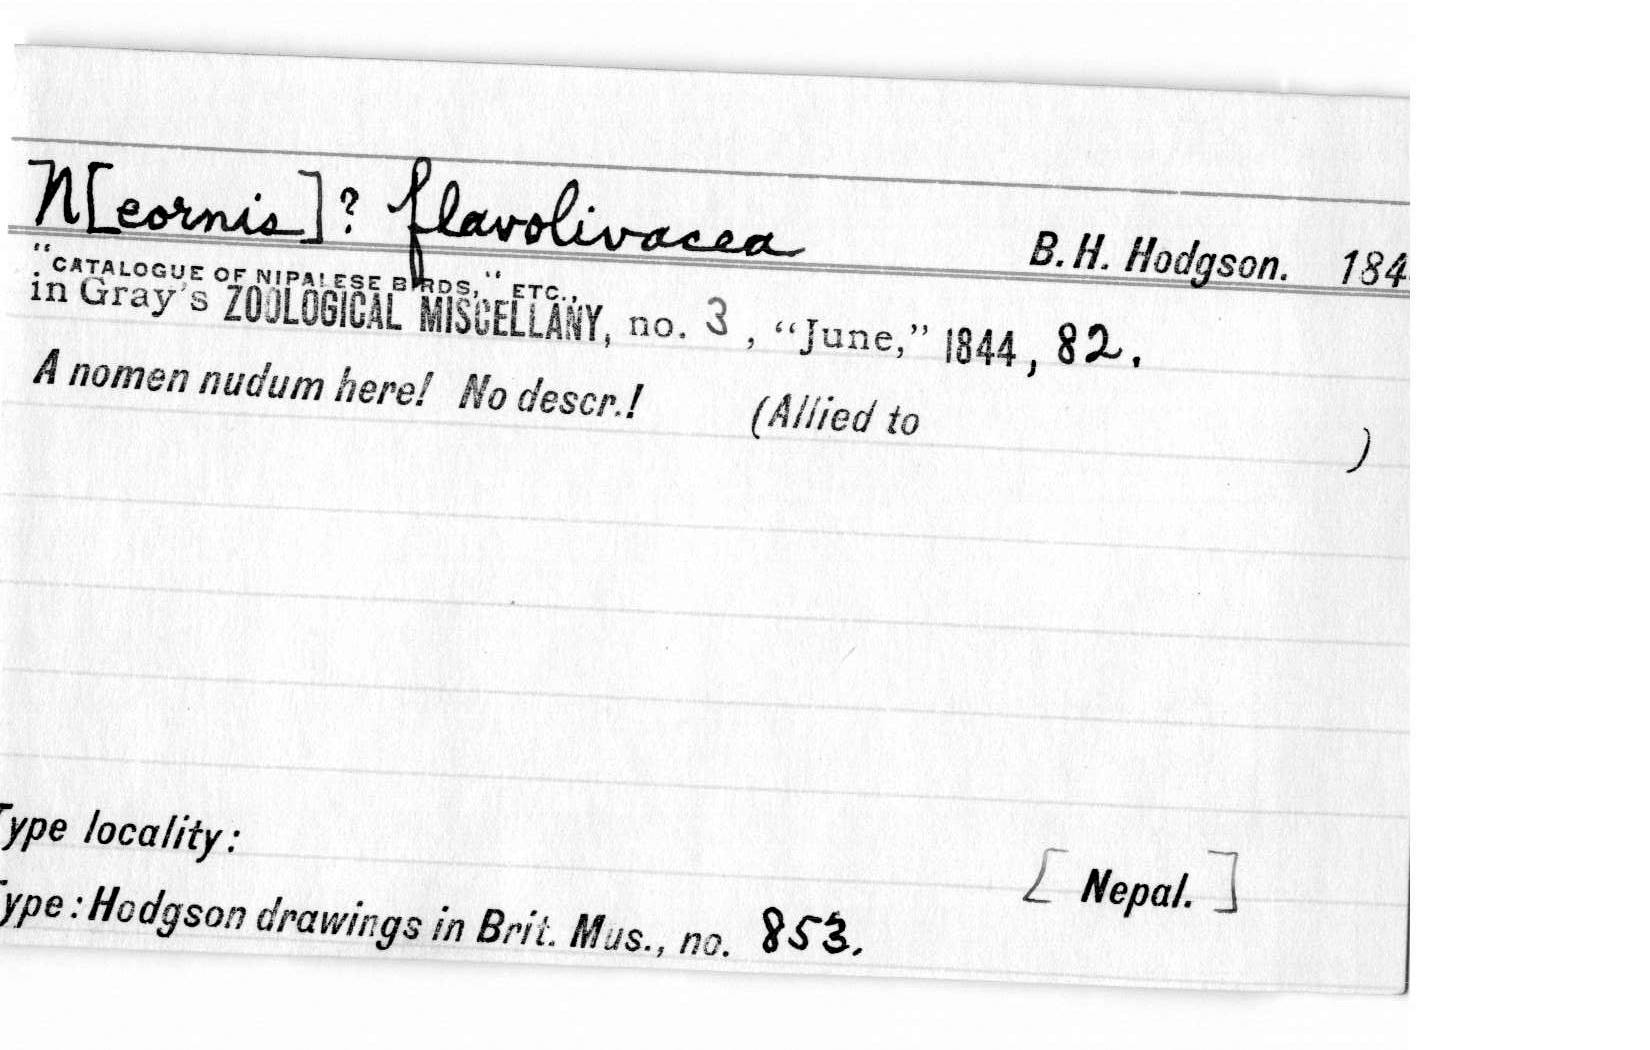 N[eornis]? flavolivacea B. H. Hodgson. 184
"CATALOGUE OF NIPALESE BIRDS," ETC.,
in Gray's ZOOLOGICAL MISCELLANY, no. 3, "June," 1844, 82.
A nomen nudum here! No descr.! (Allied to )
Type locality: [Nepal.]
Type: Hodgson drawings in Brit. Mus., no. 853.